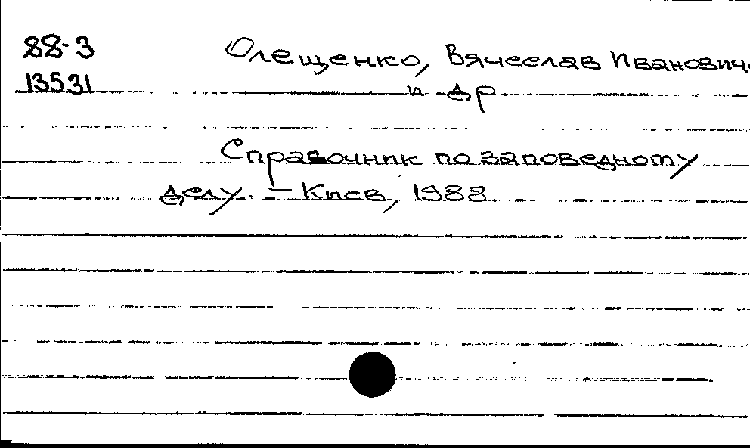 88-3
13531
Олещенко, Вячеслав Иванович
и др
Справочник по заповедному
делу. – Киев, 1988